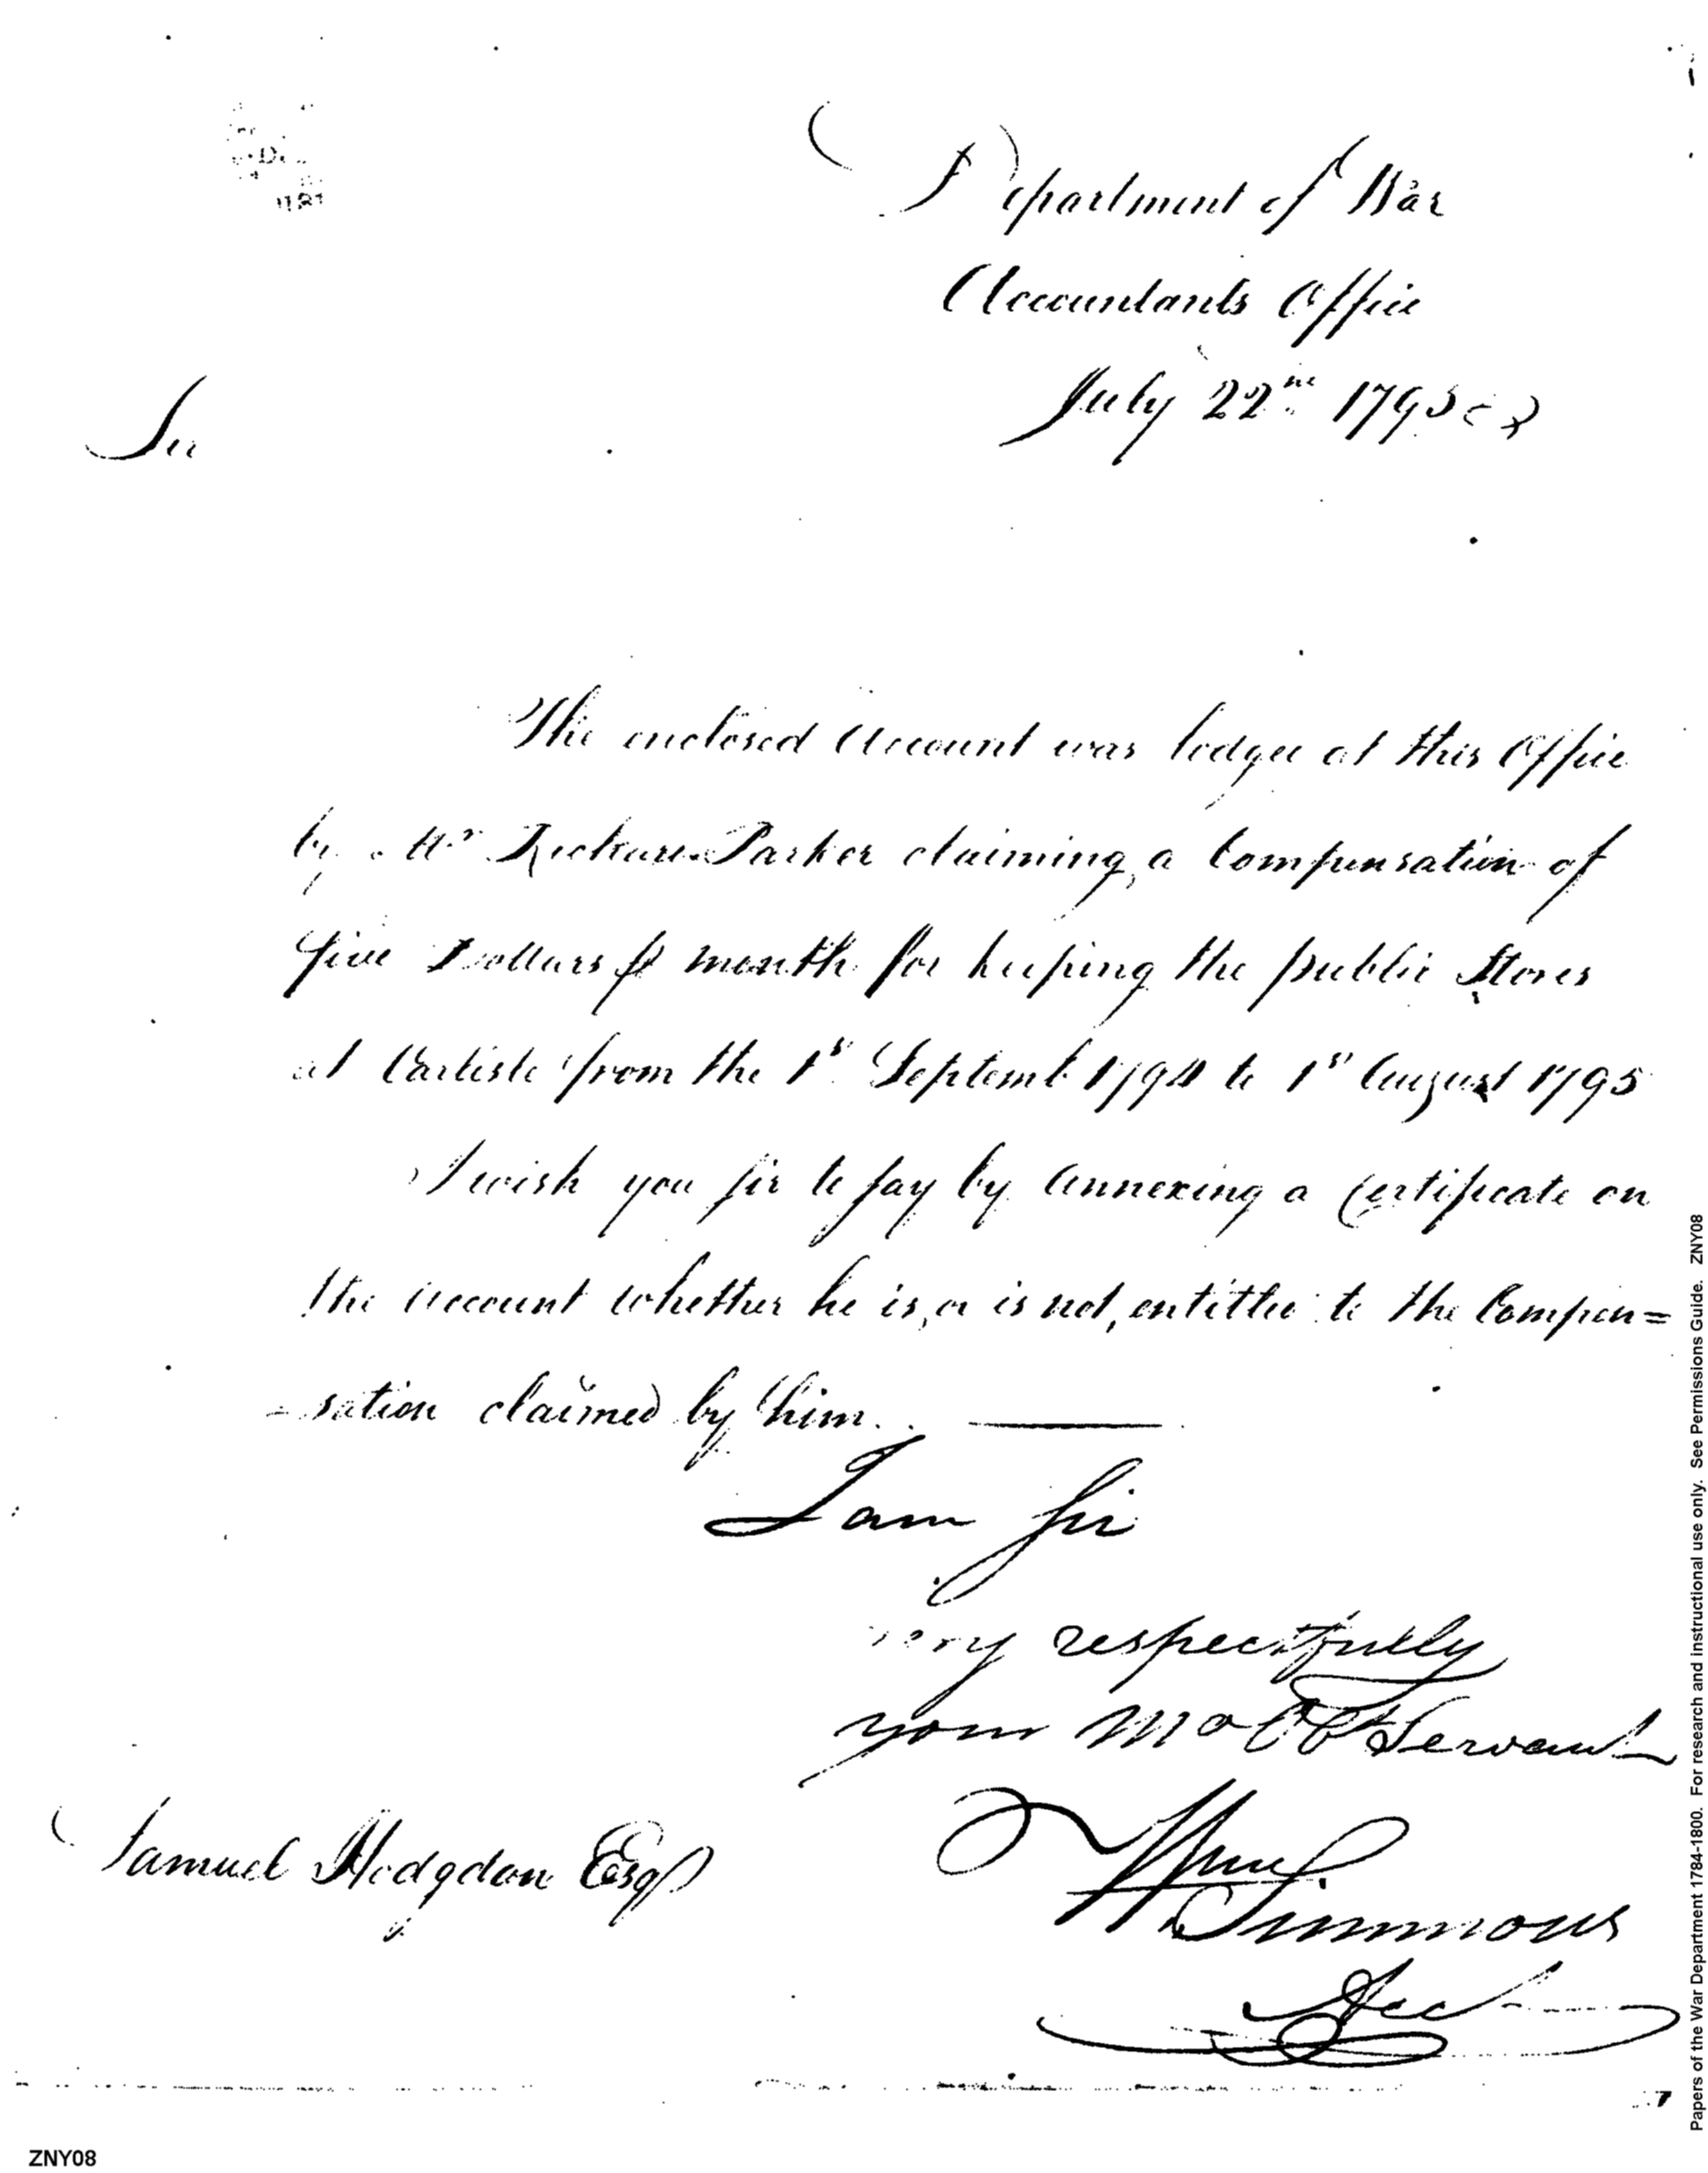 Department of War
Accountants Office
July 22nd 1795
Sir
The enclosed Account was lodged at this Office
by Mr Richard Parker claiming, a Compensation of
five Dollars ⅌ month for keeping the public Stores
at Carlisle from the 1st Septembr 1794 to 1st August 1795
I wish you sir to say by annexing a Certificate on
the Account whether he is, or is not, entitled to the Compen=
=sation claimed by him.
I am Sir
very respectfully
your Mo Ob Servant
Wm. Simmons
Acct
Samuel Hodgdon Esqr
Papers of the War Department 1784-1800. For research and instructional use only. See Permissions Guide. ZNY08
ZNY08